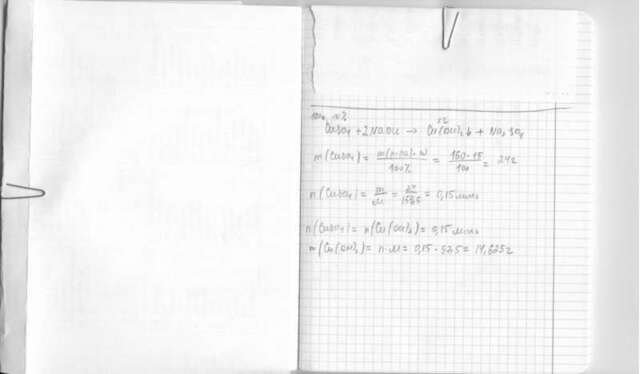 CuSO₄ + 2NaOH → Cu(OH)₂↓ + Na₂SO₄
m(CuSO₄) = m(р-ра)·W / 100% = 160·15 / 100 = 24г
n(CuSO₄) = m / M = 24 / = 0,15 моль
n(CuSO₄) = n(Cu(OH)₂) = 0,15 моль
m(Cu(OH)₂) = n·M = 0,15 · = 14,625г